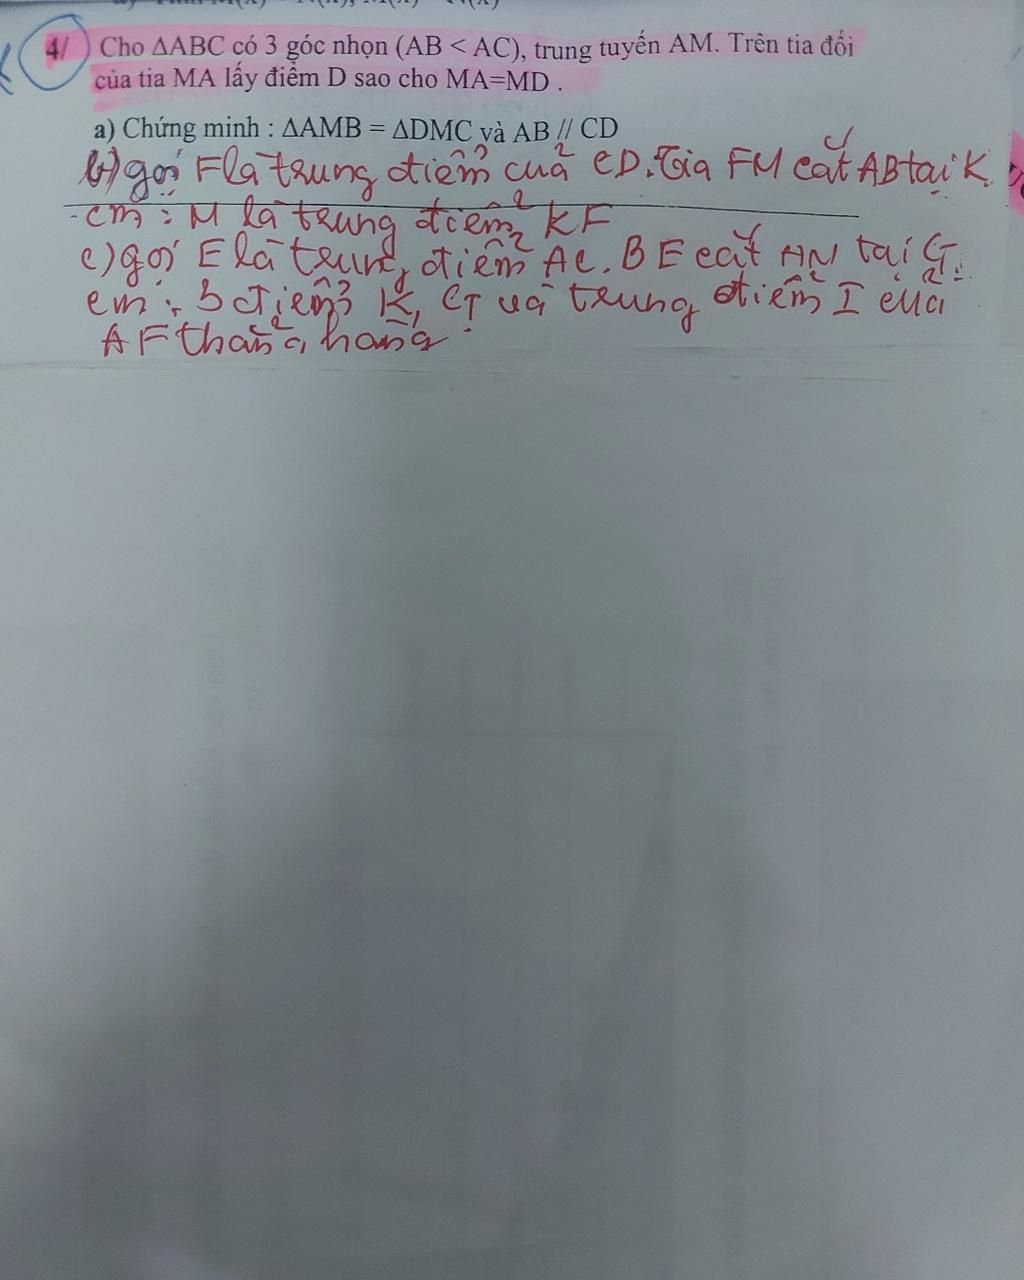 4/ Cho ΔABC có 3 góc nhọn (AB < AC), trung tuyến AM. Trên tia đối
của tia MA lấy điểm D sao cho MA=MD .
a) Chứng minh : ΔAMB = ΔDMC và AB // CD
b) gọi F là trung điểm của CD. Tia FM cắt AB tại K
cm : M là trung điểm KF
c) gọi E là trung điểm AC. BE cắt AM tại G.
cm : 3 điểm K, G và trung điểm I của
AF thẳng hàng